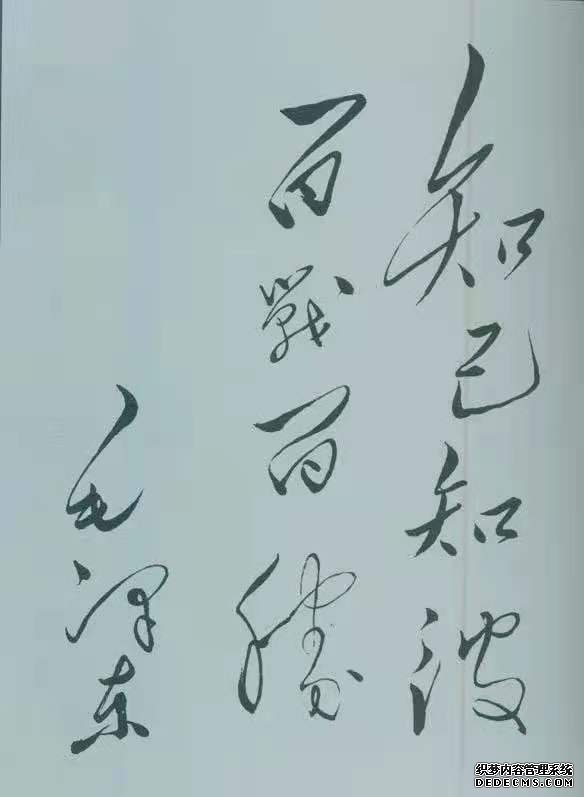 知己知彼
百戰百勝
毛泽东
织梦内容管理系统
DEDECMS.COM